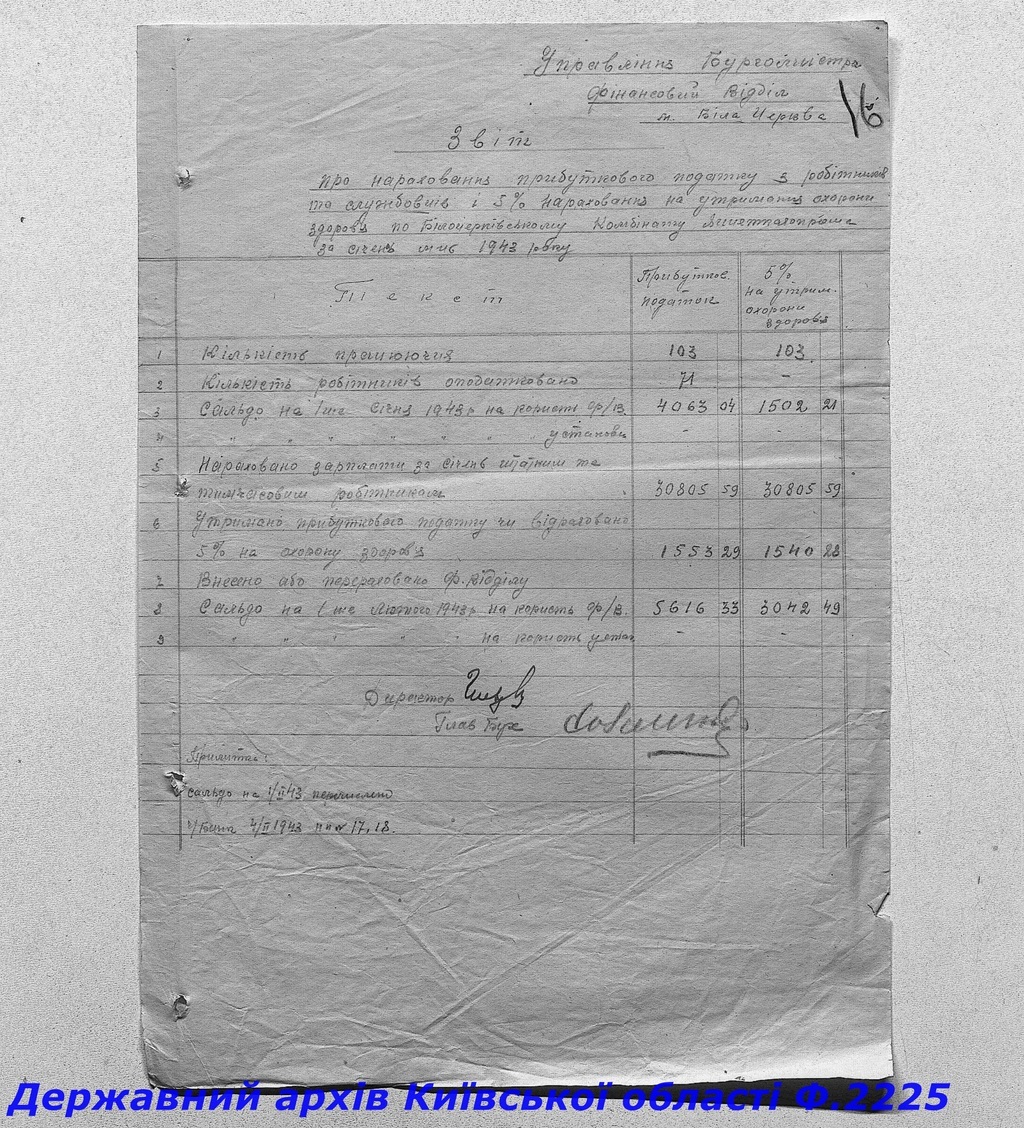 Управління Бургомістра
Фінансовий Відділ
м. Біла Церква
16
Звіт
про нараховання прибуткового податку з робітників
та службовців і 5% нараховання на утримання охорони
здоровя по Білоцерківському Комбінату
за січень м-ць 1943 року
Текст
Прибутков. податок
5% на утрим. охорони здоровя
1 Кількість працюючих 103 103
2 Кількість робітників оподатковано 71 -
3 Сальдо на 1-ше Січня 1943 р на користь ф/в. 4063 04 1502 21
4 " " " " " " " установи - -
5 Нараховано зарплати за січень штатним та
тимчасовим робітникам 30805 59 30805 59
6 Утримано прибуткового податку чи відраховано
5% на охорону здоровя 1553 29 1540 28
7 Внесено або перераховано Ф. Відділу
8 Сальдо на 1-ше Лютого 1943 р на користь ф/в. 5616 33 3042 49
9 " " " " " на користь устан - -
Директор
Глав Бух
Примітка:
сальдо на 1/II 43 перечислено
ч/Банк 4/II 1943 17, 18.
Державний архів Київської області Ф.2225